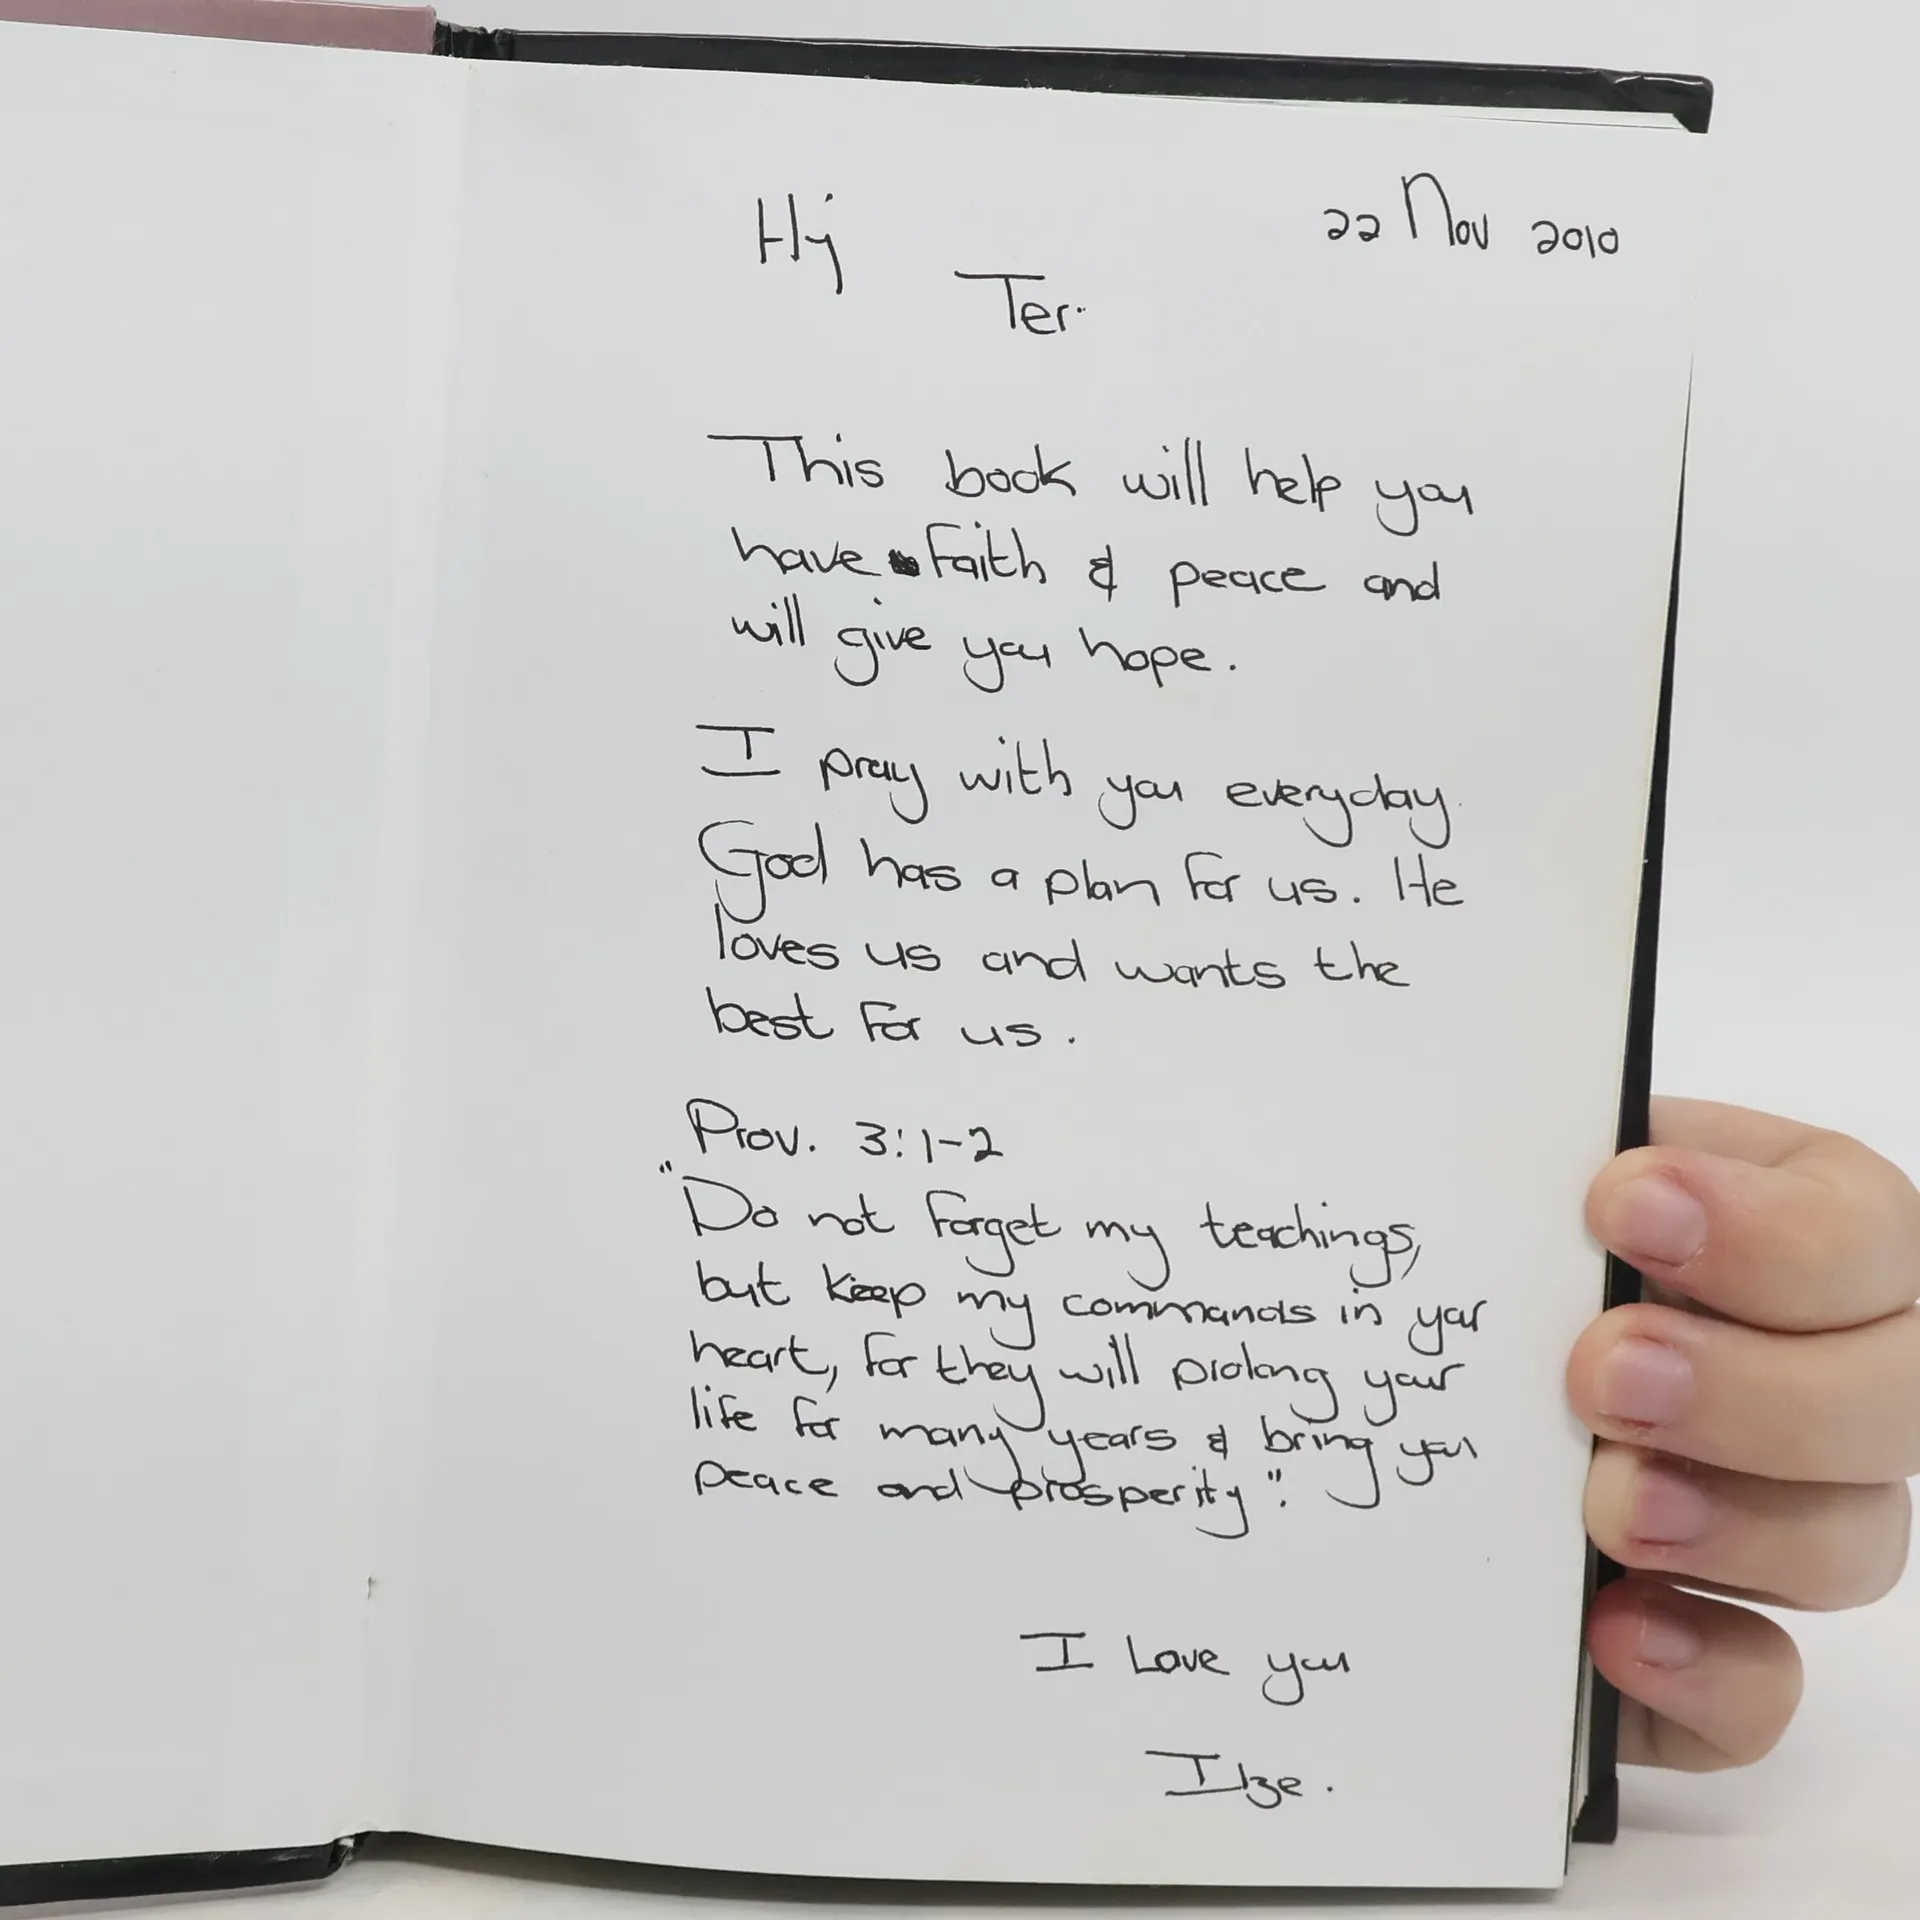 22 Nov 2010
Hi
Ter.
This book will help you
have Faith & peace and
will give you hope.
I pray with you everyday.
God has a plan for us. He
loves us and wants the
best for us.
Prov. 3:1-2
"Do not forget my teachings,
but keep my commands in your
heart, for they will prolong your
life for many years & bring you
peace and prosperity".
I Love you
Ilze.